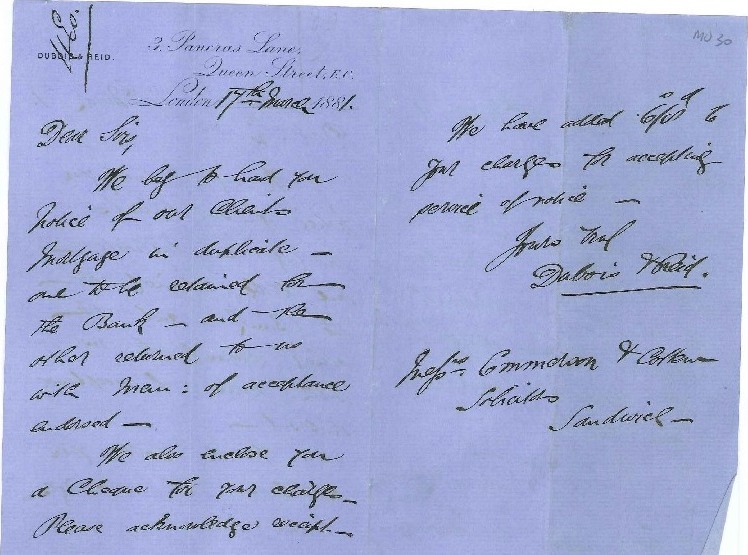 MU 30
DUBOIS & REID.
3, Pancras Lane,
Queen Street, E.C.
London 17th March 1881.
Dear Sirs
We beg to hand you
Notice of our Clients
Mortgage in duplicate —
one to be retained for
the Bank — and the
other returned to us
with Mem: of acceptance
endorsed —
We also enclose you
a Cheque for your charges —
Please acknowledge receipt —
We have added 6/8 to
your charges for accepting
service of notice —
Yours truly
Dubois & Reid.
Messrs Emmerson &
Solicitors
Sandwich —